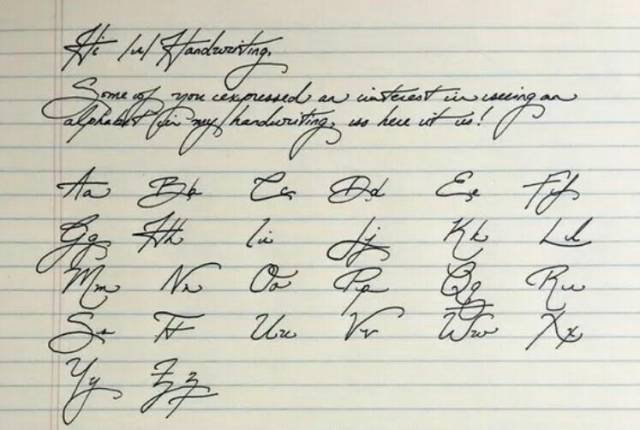 Hi /r/ Handwriting,
Some of you expressed an interest in seeing an
alphabet in my handwriting, so here it is!
Aa Bb Cc Dd Ee Ff
Gg Hh Ii Jj Kk Ll
Mm Nn Oo Pp Qq Rr
Ss Tt Uu Vv Ww Xx
Yy Zz